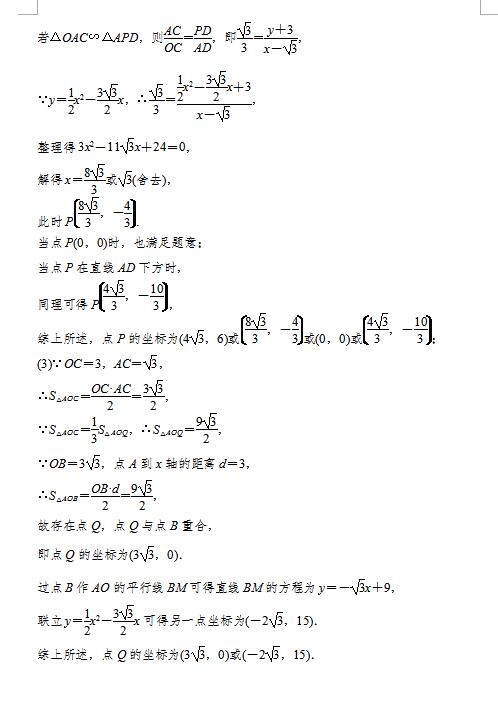 若△OAC∽△APD，则AC/OC=PD/AD，即√3/3=(y+3)/(x-√3)，
∵y=1/2x²-3√3/2x，∴√3/3=(1/2x²-3√3/2x+3)/(x-√3)，
整理得3x²-11√3x+24=0，
解得x=8√3/3或√3(舍去)，
此时P(8√3/3，-4/3).
当点P(0，0)时，也满足题意；
当点P在直线AD下方时，
同理可得P(4√3/3，-10/3)，
综上所述，点P的坐标为(4√3，6)或(8√3/3，-4/3)或(0，0)或(4√3/3，-10/3)；
(3)∵OC=3，AC=√3，
∴S△AOC=OC·AC/2=3√3/2，
∵S△AOC=1/3S△AOQ，∴S△AOQ=9√3/2，
∵OB=3√3，点A到x轴的距离d=3，
∴S△AOB=OB·d/2=9√3/2，
故存在点Q，点Q与点B重合，
即点Q的坐标为(3√3，0).
过点B作AO的平行线BM可得直线BM的方程为y=-√3x+9，
联立y=1/2x²-3√3/2x可得另一点坐标为(-2√3，15).
综上所述，点Q的坐标为(3√3，0)或(-2√3，15).